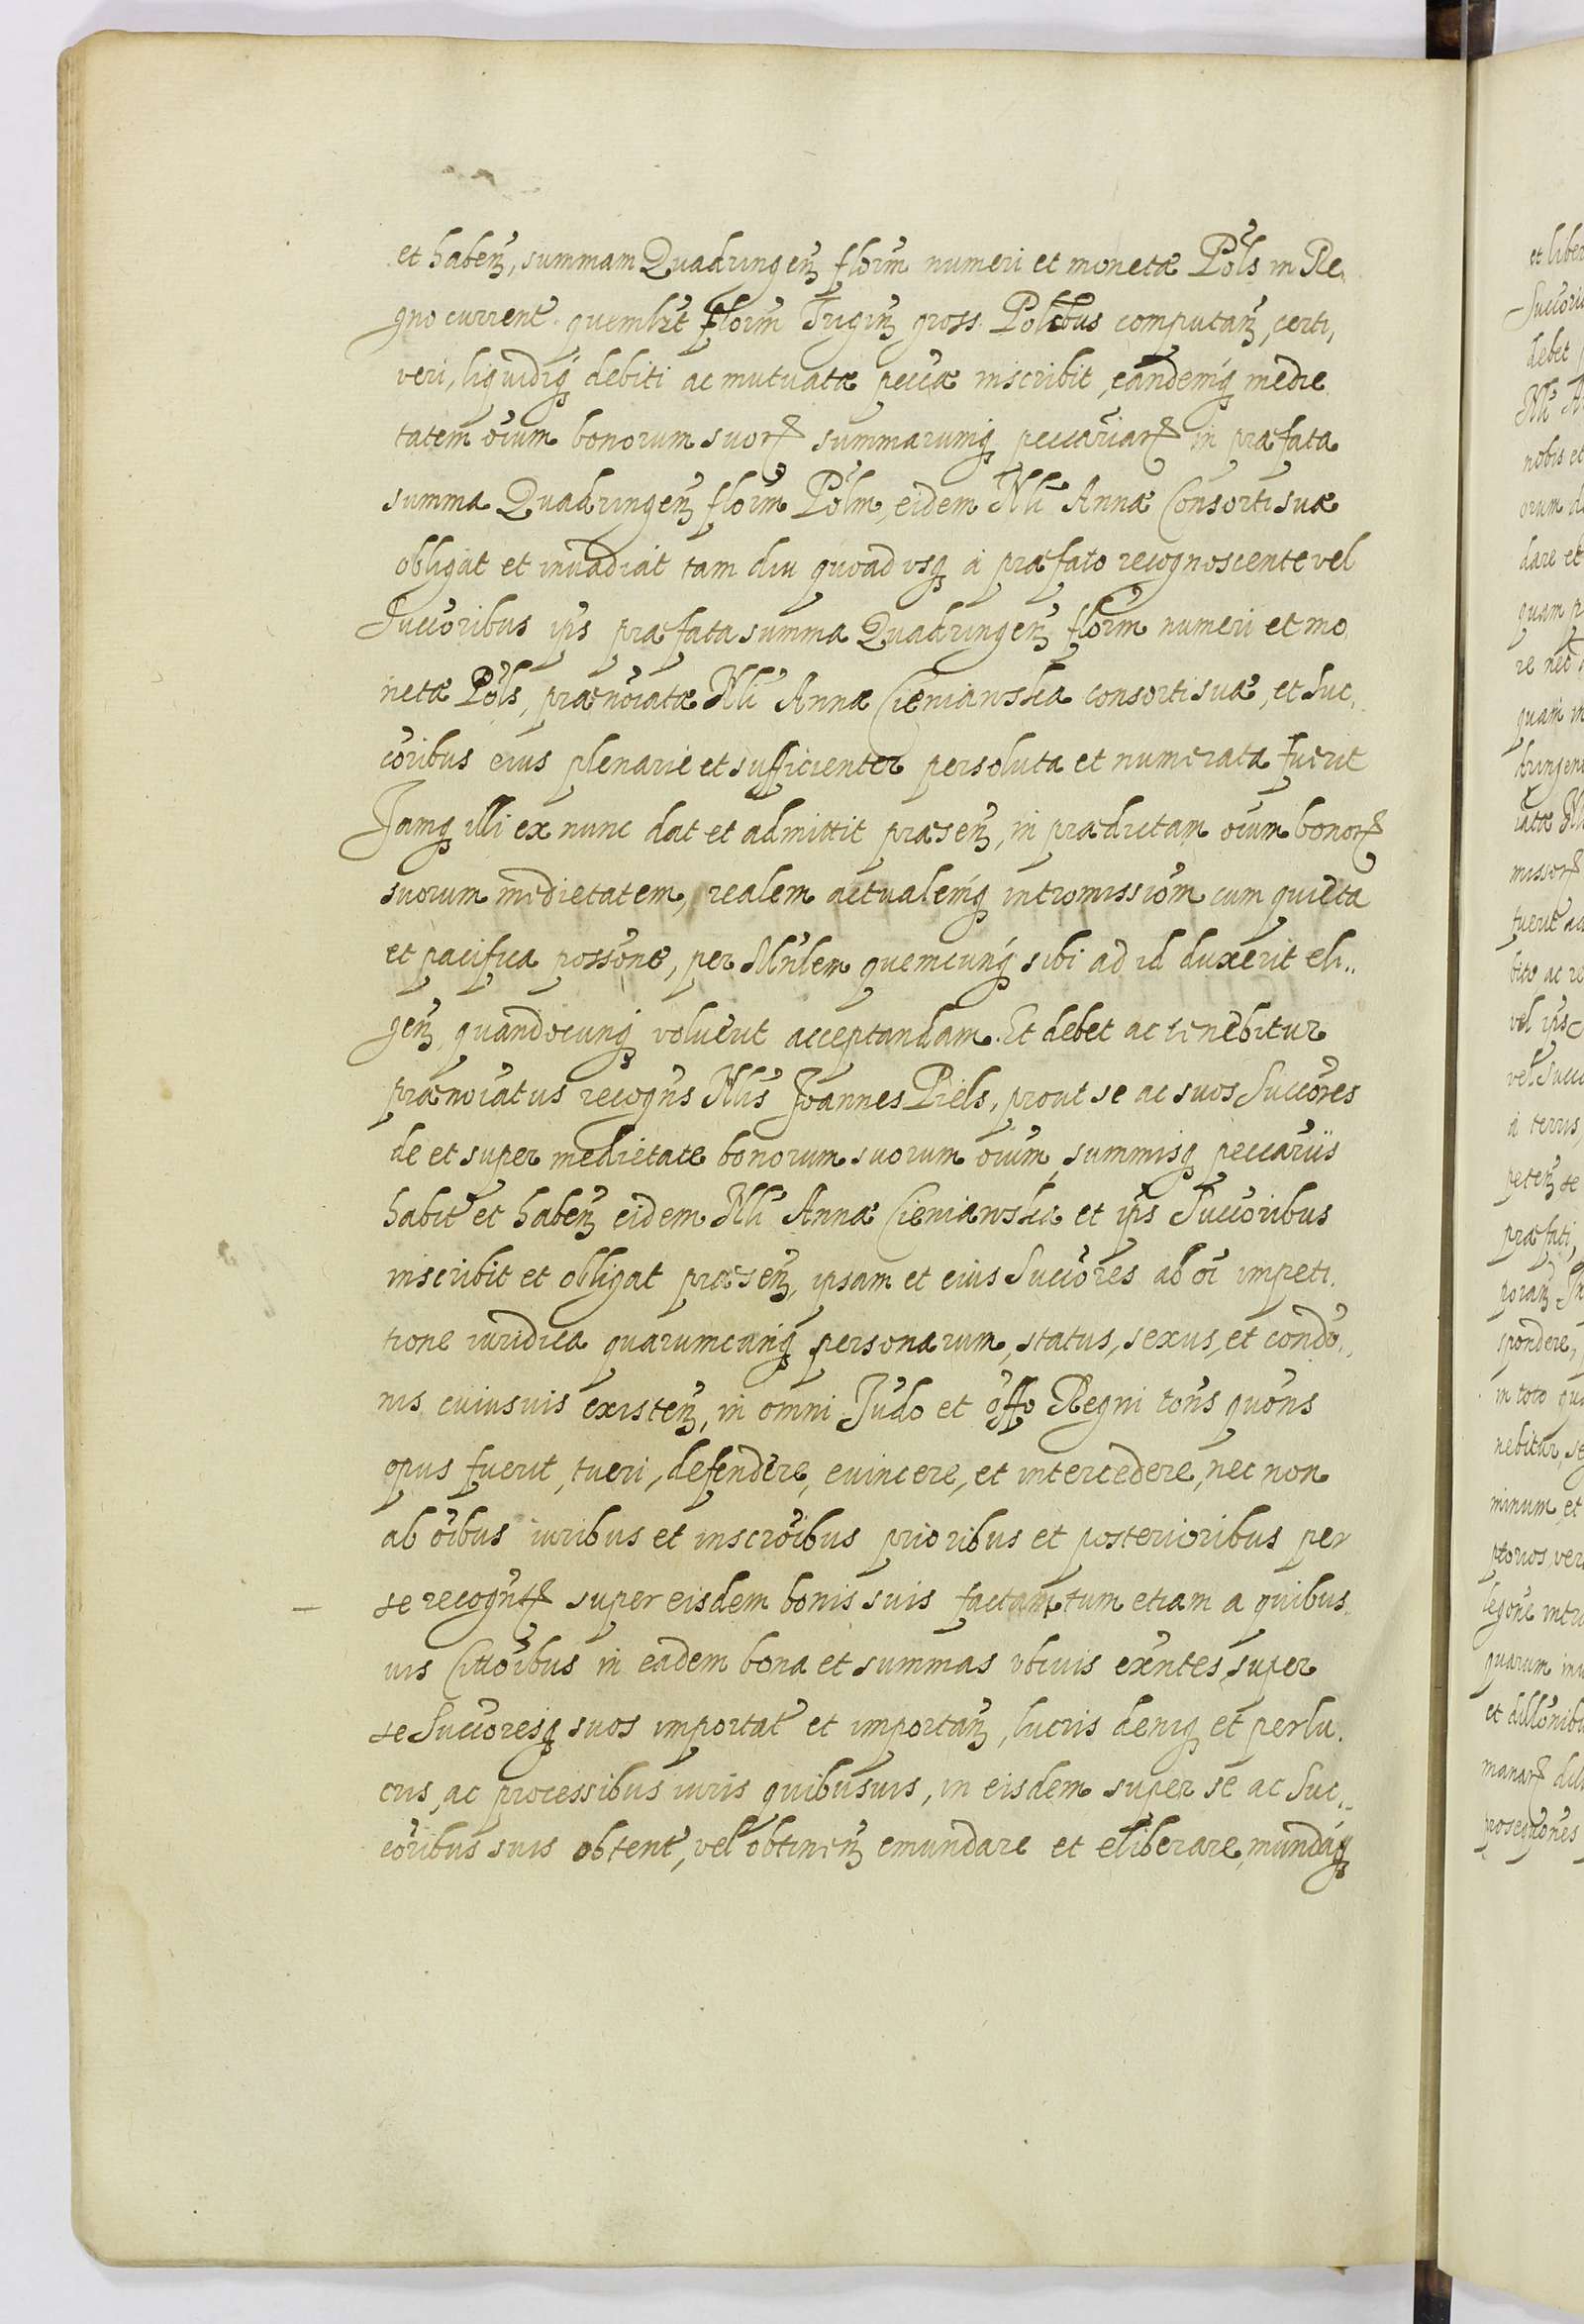 et haben, summam Quadringen florm numeri et monetæ Pols in Re,
gno current. quemlzt florm Trigin gross. Polcbus computan, certi,
veri, liquidiq debiti ac mutuatæ peccæ inscribit, eandemq medie
tatem oium bonorum suor summarumq peccaviar in præfata
summa Quadringen florm Polm, eidem Nli Annæ Consorti suæ
obligat et invadiat tam diu quoad usq à præfato recognoscente vel
Succoribus ips præfata summa Quadringen florm numeri et mo
netæ Pols, prænoiatæ Nli Annæ Cieniawska consorti suæ, et Suc,
coribus eius plenarie et sufficienter persoluta et numerata fuerit
Jamq illi ex nunc dat et admittit præsen, in prædictam oium bonor
suorum medietatem, realem actualemq intromissiom cum quieta
et pacifica possone, per Mnlem quemcunq sibi ad id duxerit eli..
gen, quandocunq voluerit acceptandam. Et debet ac tenebitur
prænoiatus recogns Nlis Joannes Piels, prout se ac suos Succores
de et super medietate bonorum suorum oium, summisq peccariis
habit et haben eidem Nli Annæ Cieniawska et ips Succoribus
inscribit et obligat præsen, ipsam et eius Succores ab oi impeti.
tione iuridica quarumcunq personarum, status, sexus, et condo..
nis cuiusvis existen, in omni Judo et offo Regni tons quons
opus fuerit, tueri, defendere, evincere, et intercedere, nec non
ab oibus iuribus et inscroibus prioribus et posterioribus per
se recognt super eisdem bonis suis factam tum etiam a quibus.
vis Cittoibus in eadem bona et summas ubivis exntes, super
se Succoresq suos importat et importan, lucris deniq et perlu.
cris, ac processibus iuris quibusvis, in eisdem super se ac Suc..
coribus suis obtent, vel obtinen emundare et eliberare, mundaq